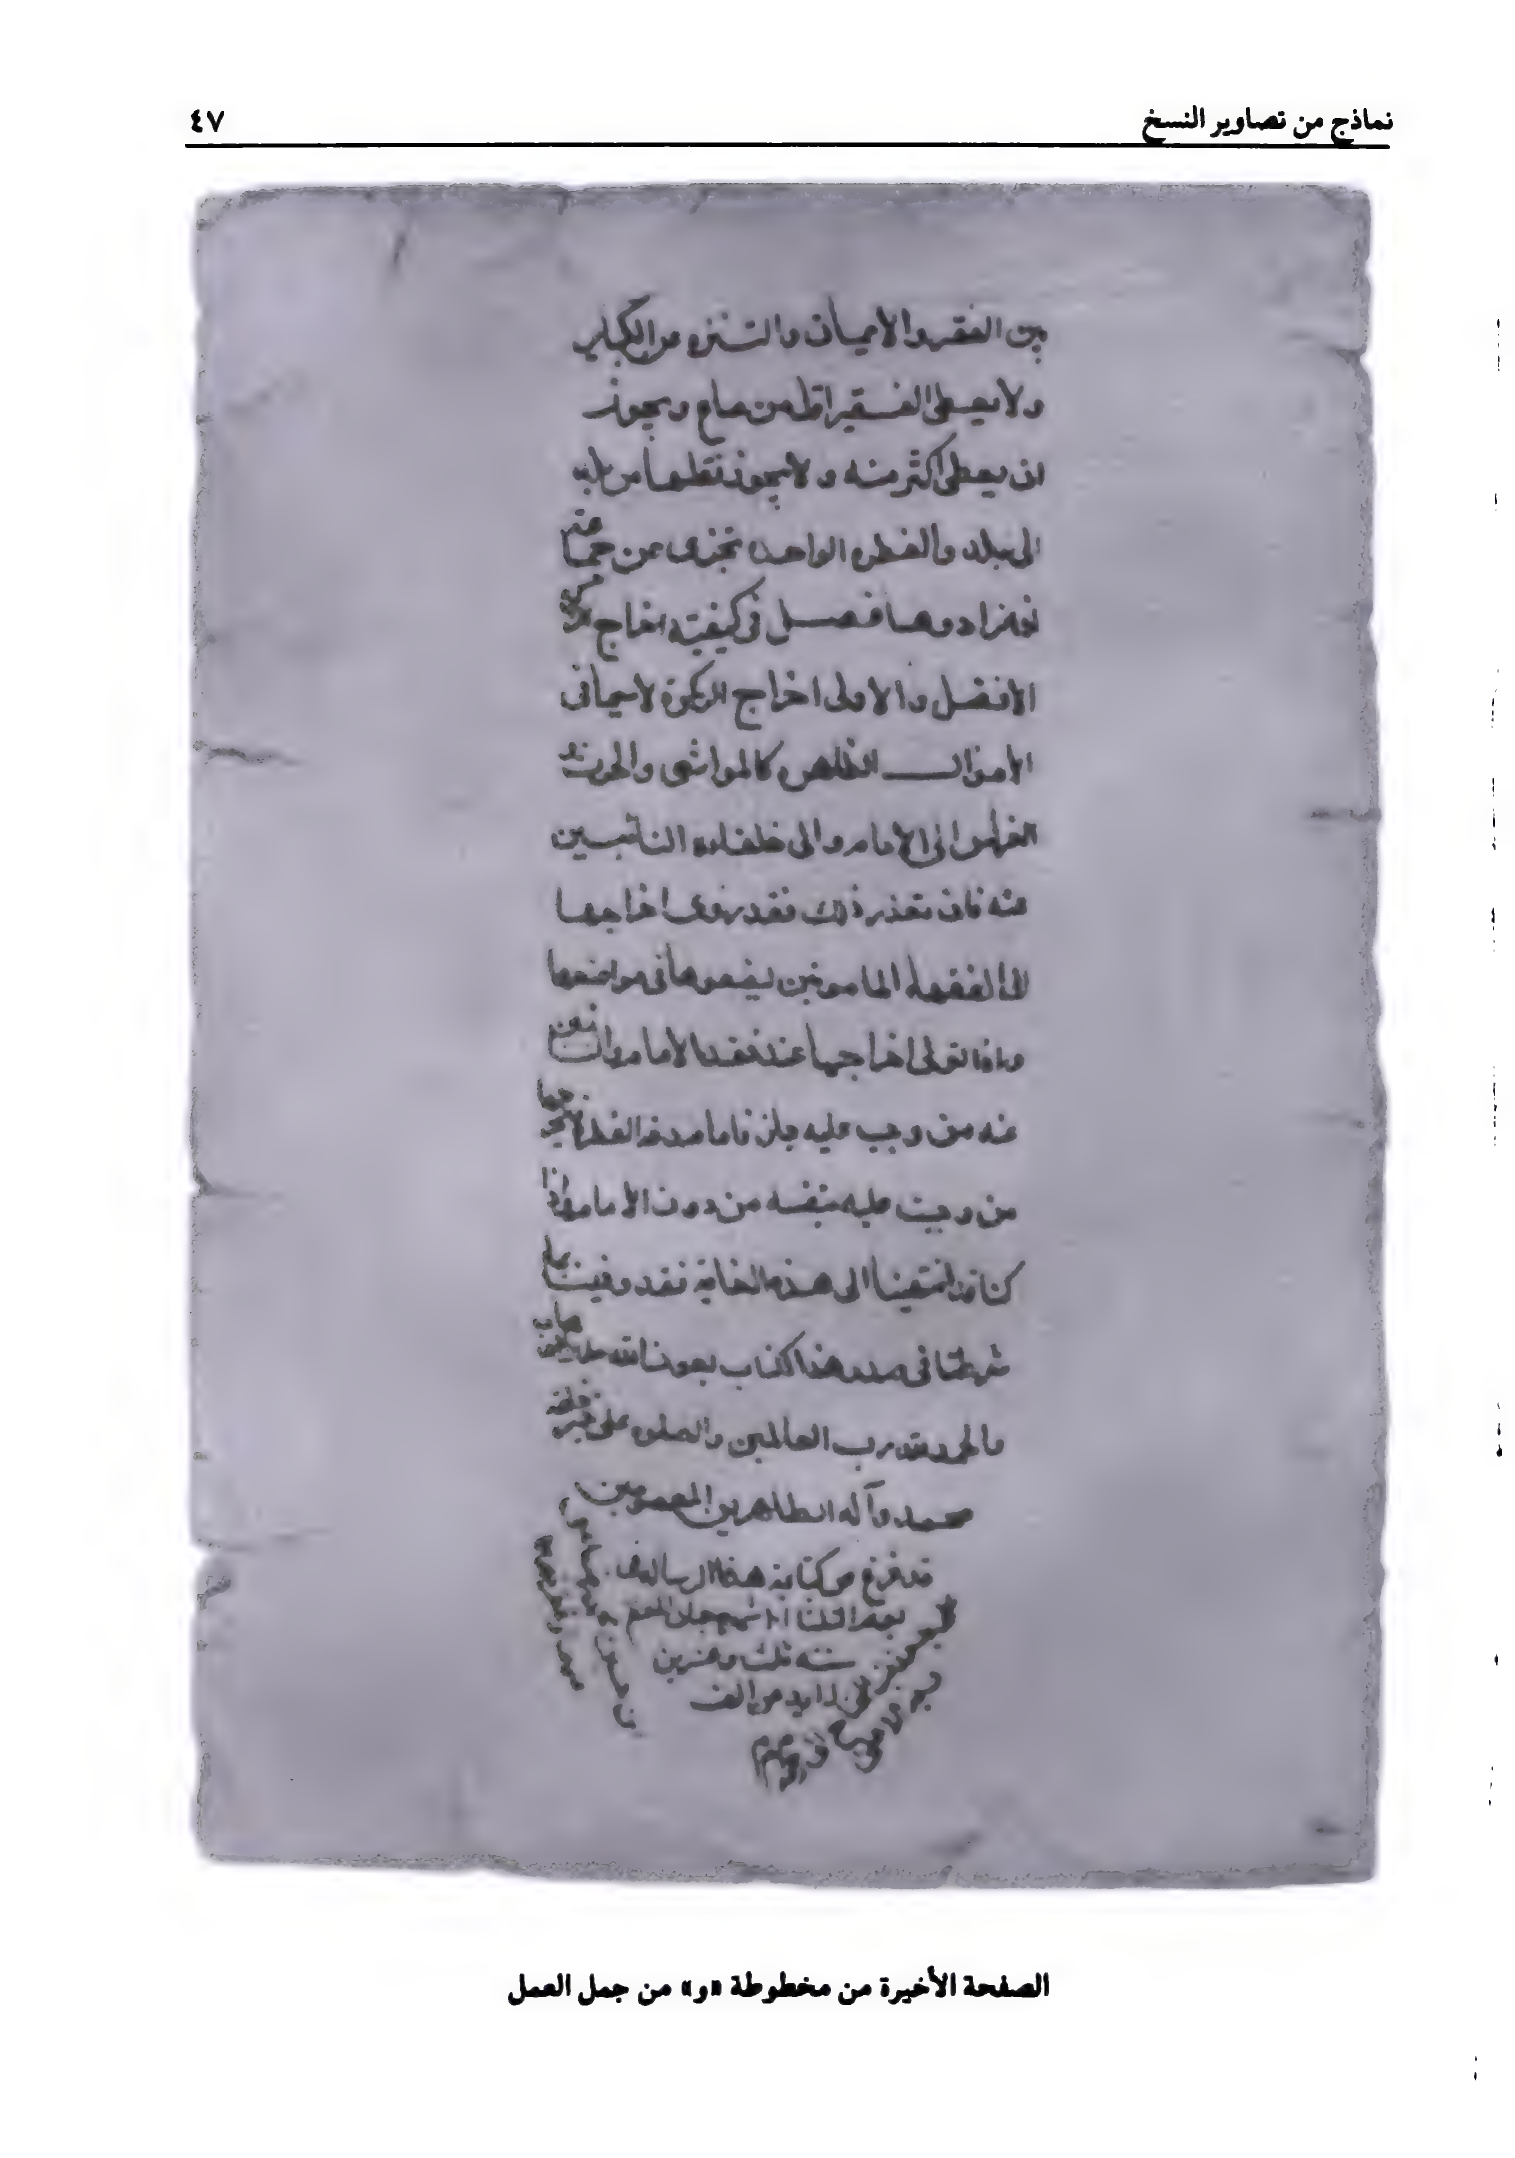 نماذج من تصاوير النسخ ٤٧
بين الفقر والأيمان والتنزه من الكبائر
ولا يعطى الفقير اقل من صاع ويجوز
ان يعطى اكثر منه ولا يجوز نقلها من بلد
الى بلد والفطره الواحده تجزى عن جماعته
فصل فى كيفيته اخراج الزكوة
الأفضل والاولى اخراج الزكوة لاسيما فى
الأموال الظاهره كالمواشى والحرث و
الغراس الى الامام والى خلفاءه النائبين
عنه فان تعذر ذلك فقد روى اخراجها
الى الفقهاء المامونين ليضعوها فى مواضعها
واذا تولى اخراجها عند فقد الامام والنائبين
عنه من وجب عليه جاز فاما صدقه الفطر
من وجبت عليه بنفسه من دون الامام واذا
كنا قد انتهينا الى هذه الغاية فقد وفينا بما
شرطنا فى صدر هذا الكتاب بعون الله
والحمد لله رب العالمين والصلوه على خير خلقه
محمد وآله الطاهرين المعصومين
قد فرغ من كتابة هذه الرساله
سنه ثلث وعشرين
من الف
الصفحة الأخيرة من مخطوطة «و» من جمل العمل